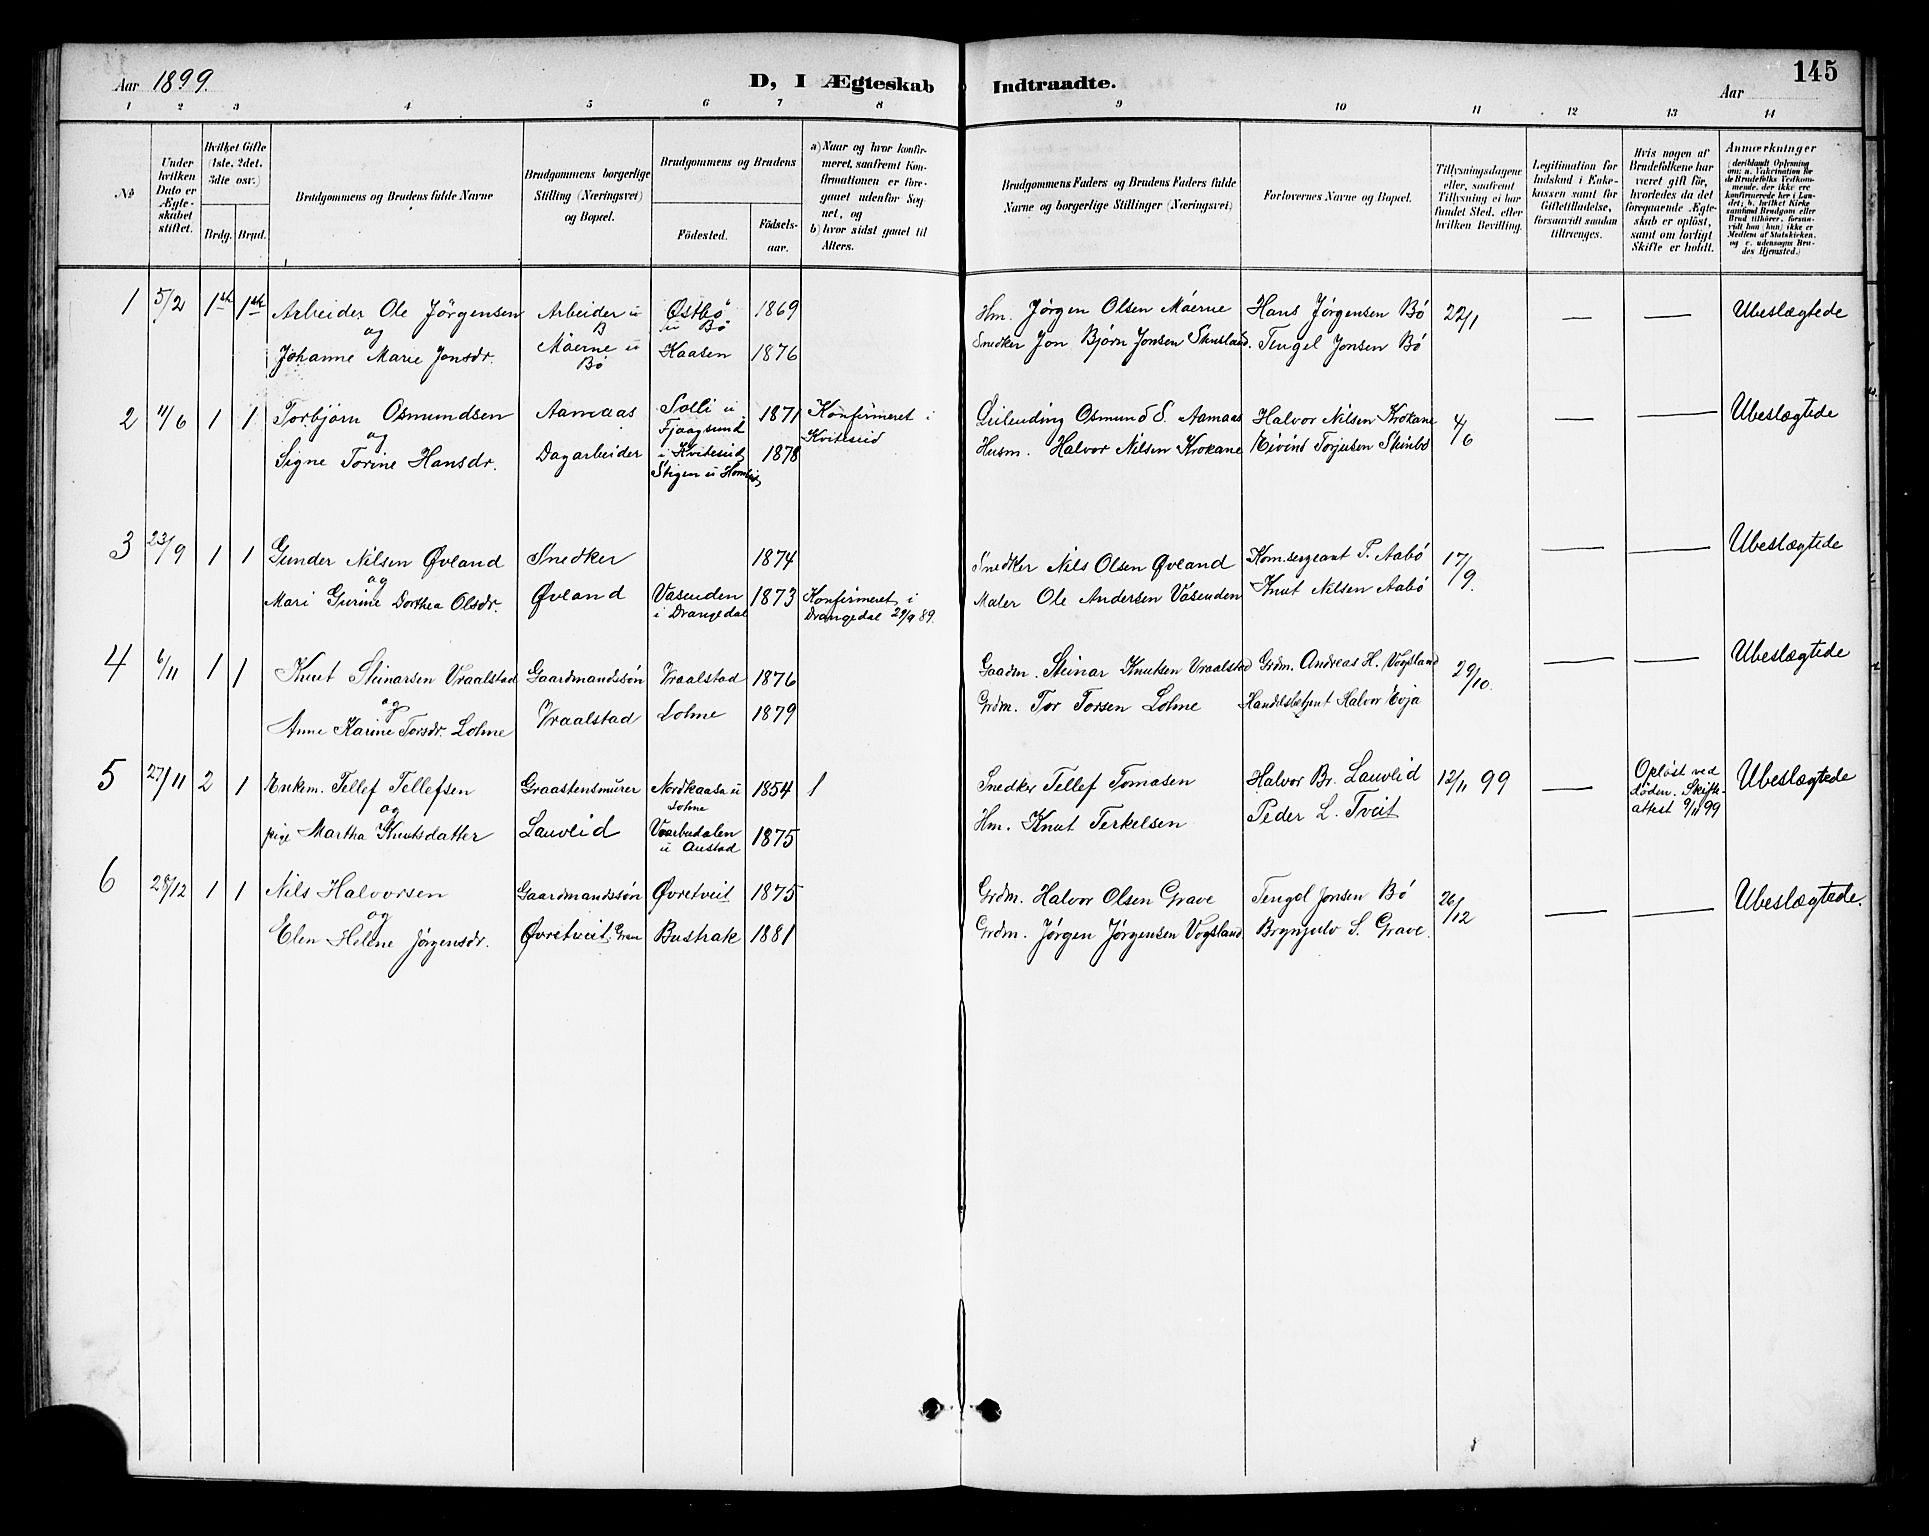 Aar 1899.
D, I Ægteskab Indtraadte.
Aar
145
1 2 3 4 5 6 7 8 9 10 11 12 13 14
No
Under hvilken Dato er Ægteskabet stiftet.
Hvilket Gifte (1ste, 2det, 3die osv.)
Brdg. Brud.
Brudgommens og Brudens fulde Navne
Brudgommens borgerlige Stilling (Næringsvei) og Bopæl.
Brudgommens og Brudens
Fødested.
Fødselsaar.
a) Naar og hvor konfirmeret, saafremt Konfirmationen er foregaaet udenfor Sognet, og
b) hvor sidst gaaet til Alters.
Brudgommens Faders og Brudens Faders fulde Navne og borgerlige Stillinger (Næringsvei)
Forlovernes Navne og Bopæl.
Tillysningsdagene eller, saafremt Tillysning ei har fundet Sted, efter hvilken Bevilling.
Legitimation for Indskud i Enkekassen samt for Giftetilladelse, forsaavidt saadan tiltrænges.
Hvis nogen af Brudefolkene har været gift før, hvorledes da det foregaaende Ægteskab er opløst, samt om lovligt Skifte er holdt.
Anmærkninger
(deriblandt Oplysning om: a. Vakcination for de Brudefolks Vedkommende, der ikke ere konfirmerede her i Landet; b. hvilket Kirkesamfund Brudgom eller Brud tilhører, forsaavidt han (hun) ikke er Medlem af Statskirken, og c. udensogns Brudes Hjemsted.)
1 5/2 1ste 1ste Arbeider Ole Jörgensen Arbeider u B Østbö u Bö 1869 Hm. Jörgen Olsen Máerne Hans Jørgensen Bö 22/1 — — Ubeslægtede
og
Johanne Marie Jonsdr. Máerne u Bö Kaasen 1876 Snedker Jon Bjørn Jonsen Tengel Jonsen Bö
2 11/6 1 1 Torbjörn Osmundsen Aamaas Solli u Fjaagesund 1871 Konfirmeret i Kviteseid Leilending Osmund S. Aamaas Halvor Nilsen Krokane 4/6 — — Ubeslægtede
og
Signe Torine Hansdr. Dagarbeider i Kviteseid Stigen u 1878 Husm. Halvor Nilsen Krokane Eivind Torjusen Steinbö
3 23/9 1 1 Gunder Nilsen Øvland Snedker 1874 Snedker Nils Olsen Øvland Kom.sergeant P. Aabö 17/9. — — Ubeslægtede
og
Mari Gurine Dorthea Olsdr. Øvland Vasenden i Drangedal 1873 Konfirmeret i Drangedal 29/9 89. Maler Ole Andersen Vasenden Knut Nilsen Aabö
4 6/11 1 1 Knut Steinarsen Vraalstad Gaardmandssön Vraalstad 1876 Gaadm. Steinar Knutsen Vraalstad Grdm. Andreas H. Vogsland 29/10. — — Ubeslægtede
og
Anne Karine Torsdr. Lohne Vraalstad Lohne 1879 Grdm. Tor Torsen Lohne Handelsbetjent Halvor Evja
5 27/11 2 1 Enkem. Tellef Tellefsen Graastensmurer Nordkaasa u Lohne 1854 1 Snedker Tellef Tomasen Halvor Br. Lauvlid 12/11 99 — Opløst ved døden. Skifteattest 9/11 99 Ubeslægtede
og
pige Martha Knutsdatter Lauvlid Vaarbudalen u Austad 1875 Hm. Knut Terkelsen Peder L. Tveit
6 28/12 1 1 Nils Halvorsen Gaardmandssön Øvretveit 1875 Grdm. Halvor Olsen Grave Tengel Jonsen Bö 26/12 — — Ubeslægtede.
og
Elen Helene Jörgensdr. Øvretveit, Grave Bustrak 1881 Grdm. Jörgen Jörgensen Vogsland Brynjulv S. Grave.